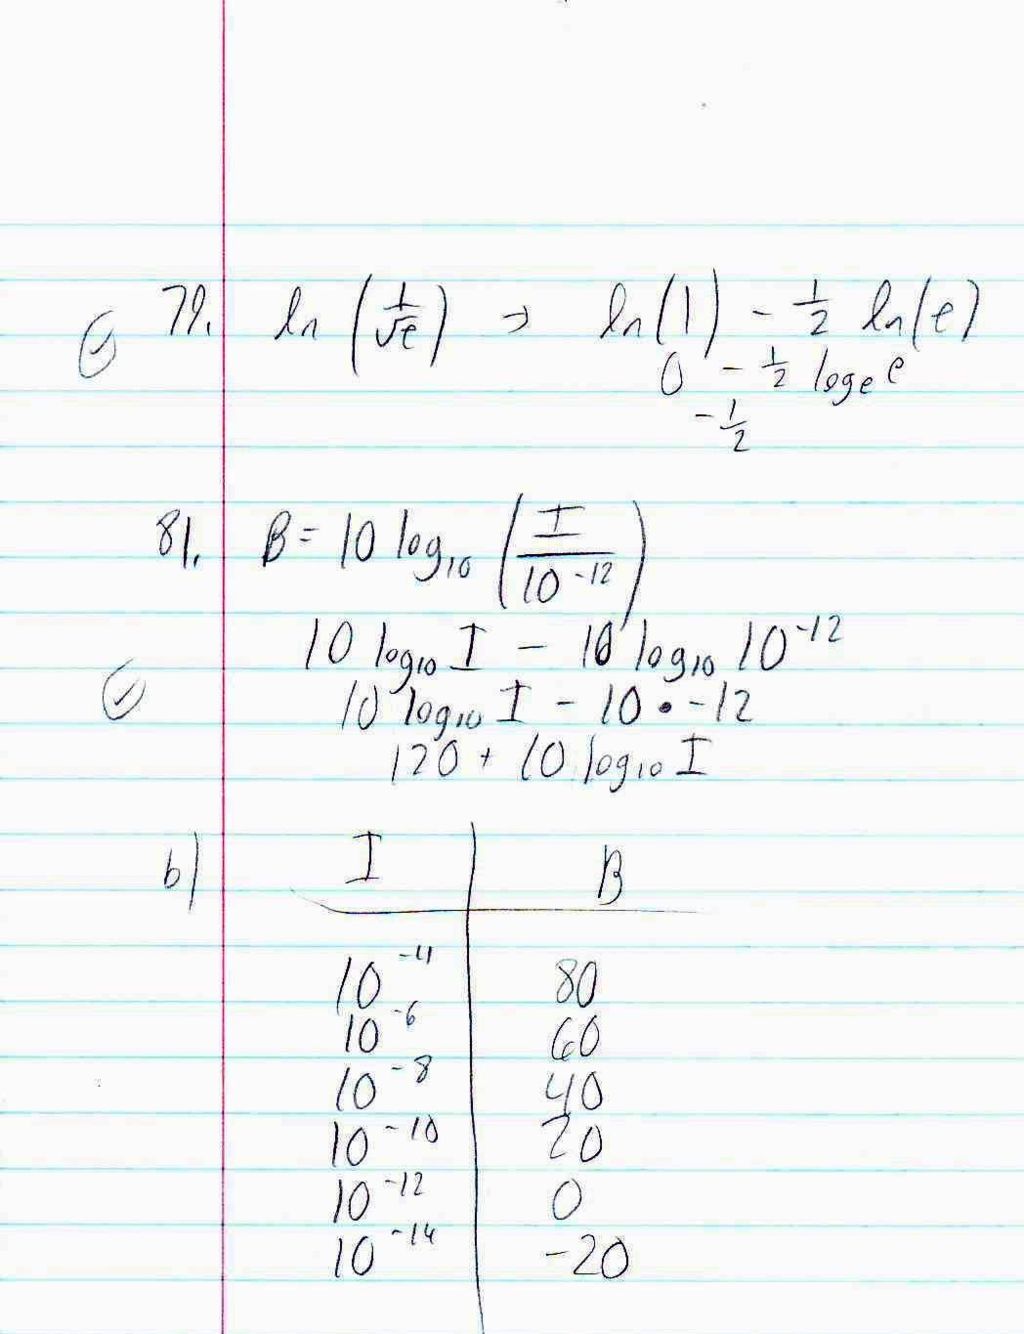 79. ln (1/√e) → ln(1) - 1/2 ln(e)
0 - 1/2 loge e
- 1/2
81. B = 10 log10 (I / 10^-12)
10 log10 I - 10 log10 10^-12
10 log10 I - 10 • -12
120 + 10 log10 I
b) I B
10^-4 80
10^-6 60
10^-8 40
10^-10 20
10^-12 0
10^-14 -20